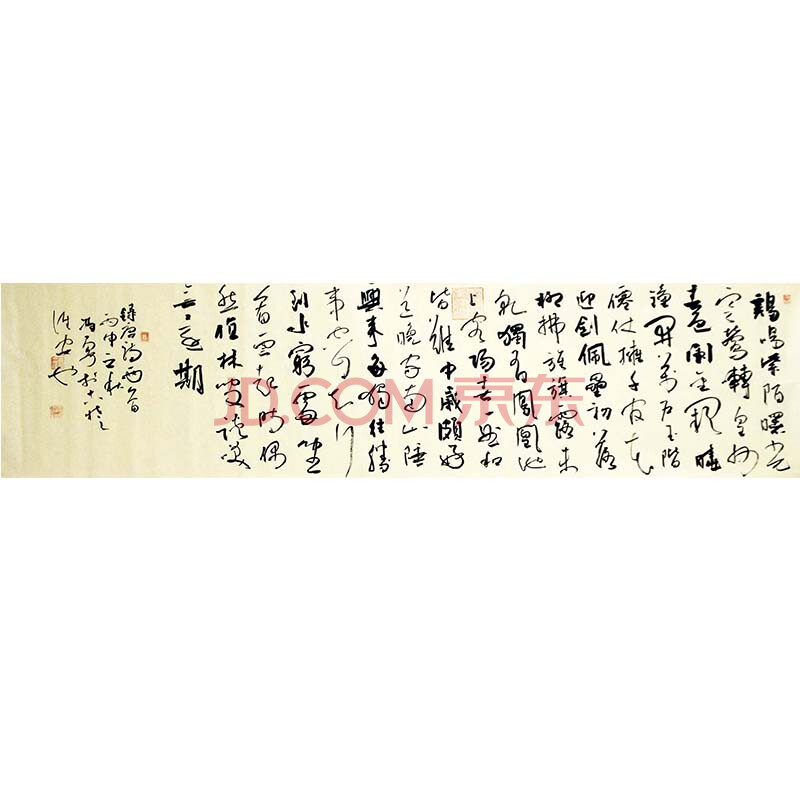 鷄鳴紫陌曙光
寒鶯轉皇州
春色闌金闕曉
鐘開萬戶玉階
僊仗擁千官花
迎劍佩星初落
柳拂旌旗露未
乾獨有鳳凰池
上客陽春一曲和
皆難中歲頗好
道晚家南山陲
興來每獨往勝
事空自知行
到水窮處坐
看雲起時偶
然值林叟談笑
無還期
錄唐詩兩首
丙申之秋
JD.COM 京东